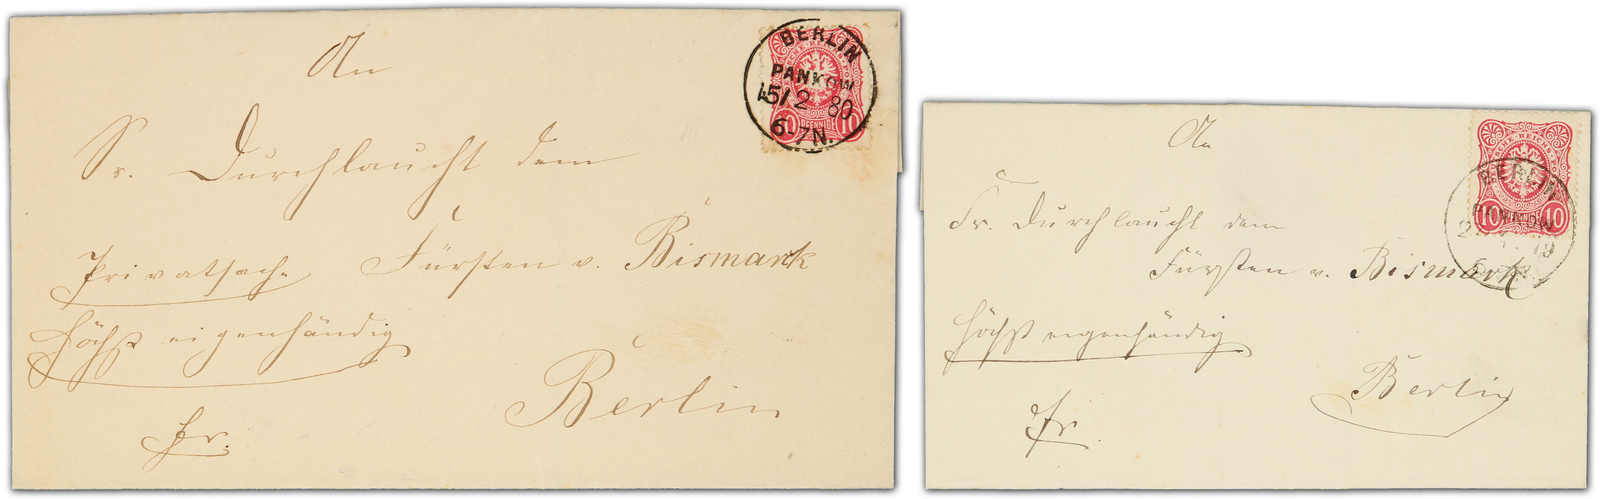 An
Sr. Durchlaucht dem
Fürsten v. Bismark
Privatsache
Höchst eigenhändig
Berlin
fr.
BERLIN
PANKOW
15/2 80
6-7N.
10 PFENNIGE 10
An
Sr. Durchlaucht dem
Fürsten v. Bismark
Höchst eigenhändig
Berlin
fr.
BERLIN
PANKOW
10 10